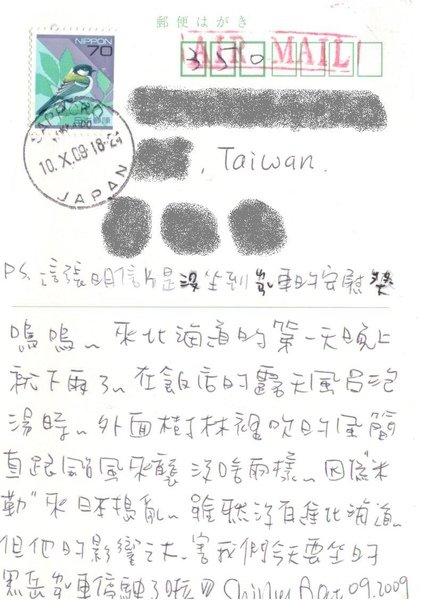 郵便はがき
AIR MAIL
350
NIPPON
70
SAPPORO
10.X.09 18-24
JAPAN
, Taiwan.
P.S. 這張明信片是沒坐到纜車的安慰獎
嗚嗚~ 來北海道的第一天晚上
就下雨了~ 在飯店的露天風呂泡
湯時~ 外面樹林裡吹的風簡
直跟颱風來襲沒啥兩樣~ 因為"米
勒"來日本搗亂~ 雖然沒有進北海道~
但他的影響之大~ 害我們今天要坐的
黑岳纜車停駛了啦!!! 09.2009